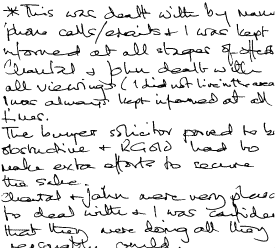 * This was dealt with by many
phone calls/emails & I was kept
informed at all stages of offers
Chantal & John dealt with
all viewings (I did not live in the area
I was always kept informed at all
times.
The buyer solicitor proved to be
obstructive & had to
make extra efforts to secure
the sale.
Chantal & John were very
to deal with & I was
that they were doing all they
reasonably could.